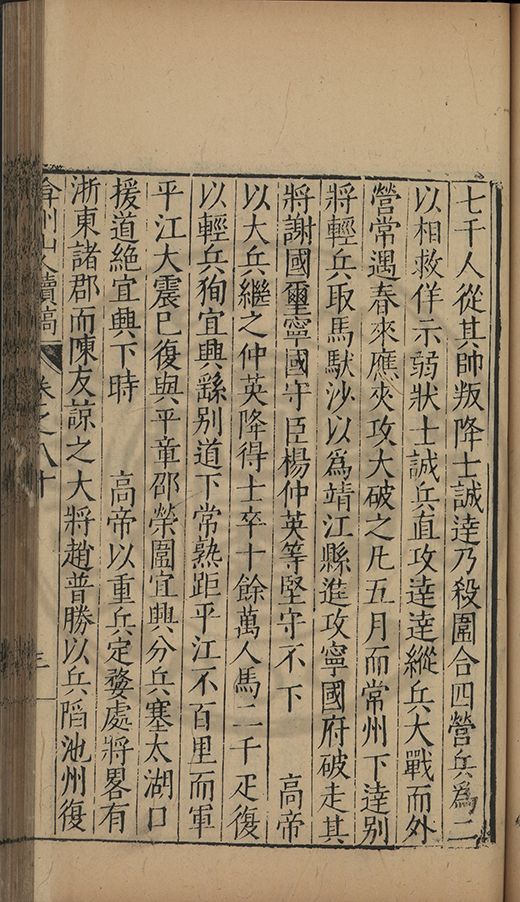 七千人從其帥叛降士誠達乃殺圍合四營兵爲二
以相救佯示弱狀士誠兵直攻達達縱兵大戰而外
營常遇春來應夾攻大破之凡五月而常州下達別
將輕兵取馬馱沙以爲靖江縣進攻寧國府破走其
將謝國璽寧國守臣楊仲英等堅守不下　　高帝
以大兵繼之仲英降得士卒十餘萬人馬二千疋復
以輕兵狥宜興繇别道下常熟距平江不百里而軍
平江大震已復與平章邵榮圍宜興分兵塞太湖口
援道絶宜興下時　　高帝以重兵定婺處將畧有
浙東諸郡而陳友諒之大將趙普勝以兵陷池州復
弇州山人續稿　卷之八十　三